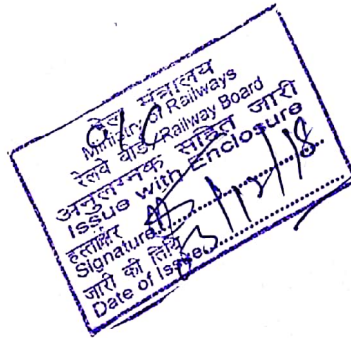 रेल मंत्रालय
O/C
Ministry of Railways
रेलवे बोर्ड/Railway Board
अनुलग्नक सहित जारी
Issue with Enclosure
हस्ताक्षर
Signature
जारी की तिथि
Date of Issue 03/12/18